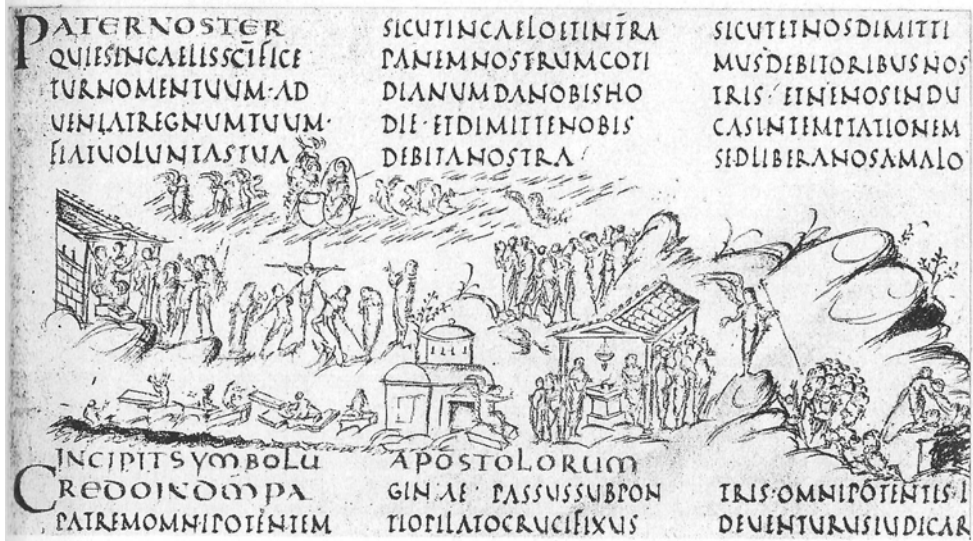 PATERNOSTER
QUIESINCAELISSC̅IFICE
TURNOMENTUUM·AD
UENIATREGNUMTUUM·
FIATUOLUNTASTUA
SICUTINCAELOETINTR̅A
PANEMNOSTRUMCOTI
DIANUMDANOBISHO
DIE·ETDIMITTENOBIS
DEBITANOSTRA
SICUTETNOSDIMITTI
MUSDEBITORIBUSNOS
TRIS· ETNENOSINDU
CASINTEMPTATIONEM
SEDLIBERANOSAMALO
INCIPITSYMBOLU APOSTOLORUM
CREDOIND̅M̅PA
PATREMOMNIPOTENTEM
GINAE· PASSUSSUBPON
TIOPILATOCRUCIFIXUS
TRIS·OMNIPOTENTES·I
DEUENTURUSIUDICAR